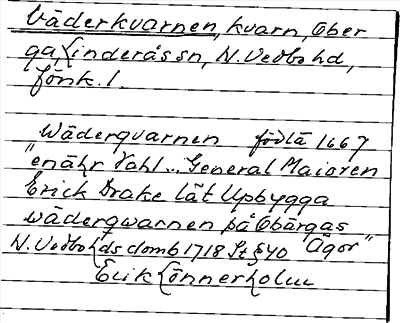 Väderkvarnen, kvarn, Ober
ga, Linderås sn, N. Vedbo hd,
Jönk. l.
Wäderqvarnen jordla 1667
"enähr Vahl... General Maioren
Erick Drake lät Upbygga
wäderqwarnen på Obärgas
N. Vedbo hds domb 1718 St § 40 Ägor"
Erik Lönnerholm